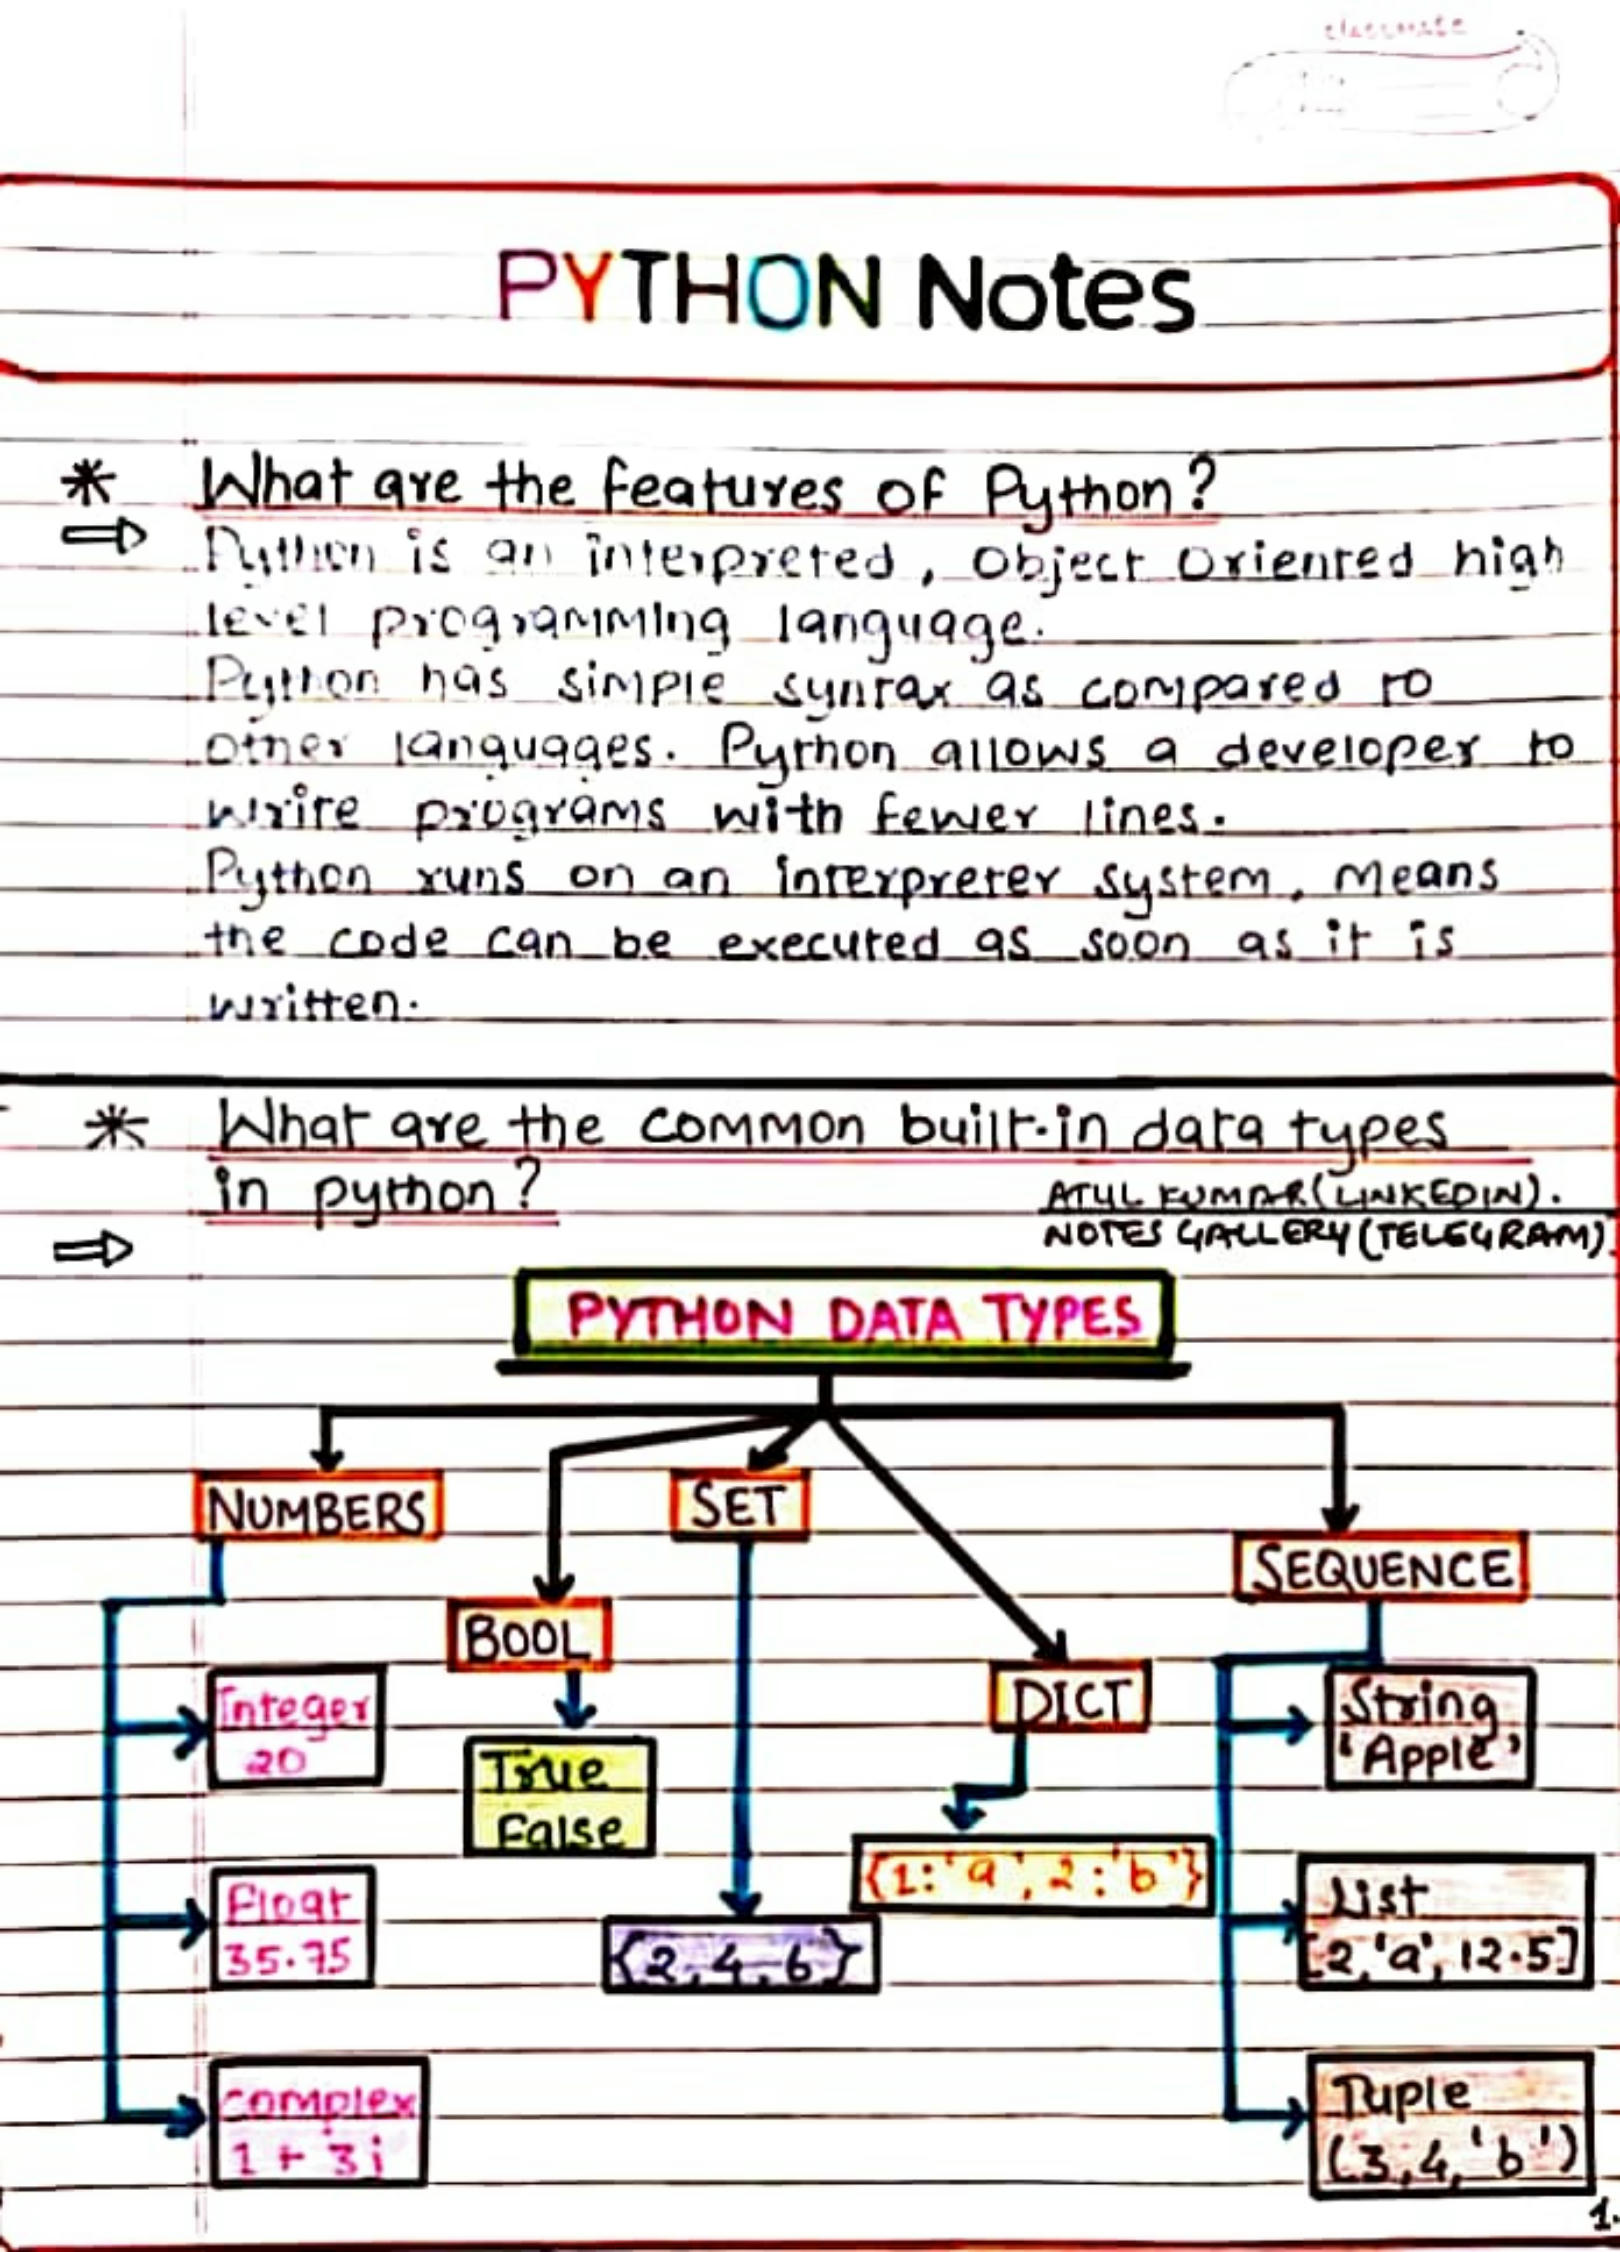 classmate
PYTHON Notes
* What are the features of Python?
⇒ Python is an interpreted, Object Oriented high
level programming language.
Python has simple syntax as compared to
other languages. Python allows a developer to
write programs with fewer lines.
Python runs on an interpreter system, means
the code can be executed as soon as it is
written.
* What are the common built-in data types
in python?
ATUL KUMAR (LINKEDIN).
NOTES GALLERY (TELEGRAM)
⇒
PYTHON DATA TYPES
NUMBERS
SET
SEQUENCE
BOOL
DICT
Integer
20
True
False
String
'Apple'
{1:'a', 2:'b'}
Float
35.75
{2,4,6}
List
[2,'a',12.5]
complex
1 + 3i
Tuple
(3,4,'b')
1.